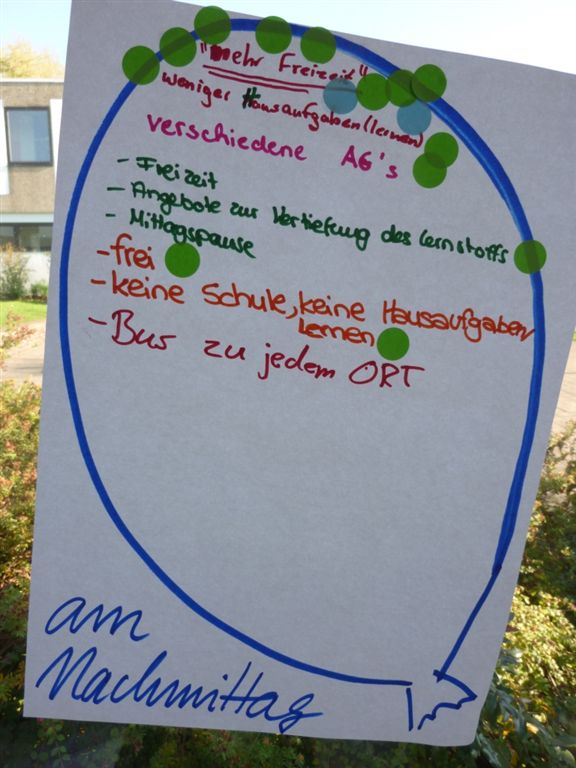 "mehr Freizeit"
weniger Hausaufgaben (lernen)
verschiedene AG's
- Freizeit
- Angebote zur Vertiefung des Lernstoffs
- Mittagspause
- frei
- keine Schule, keine Hausaufgaben
lernen
- Bus zu jedem ORT
am
Nachmittag